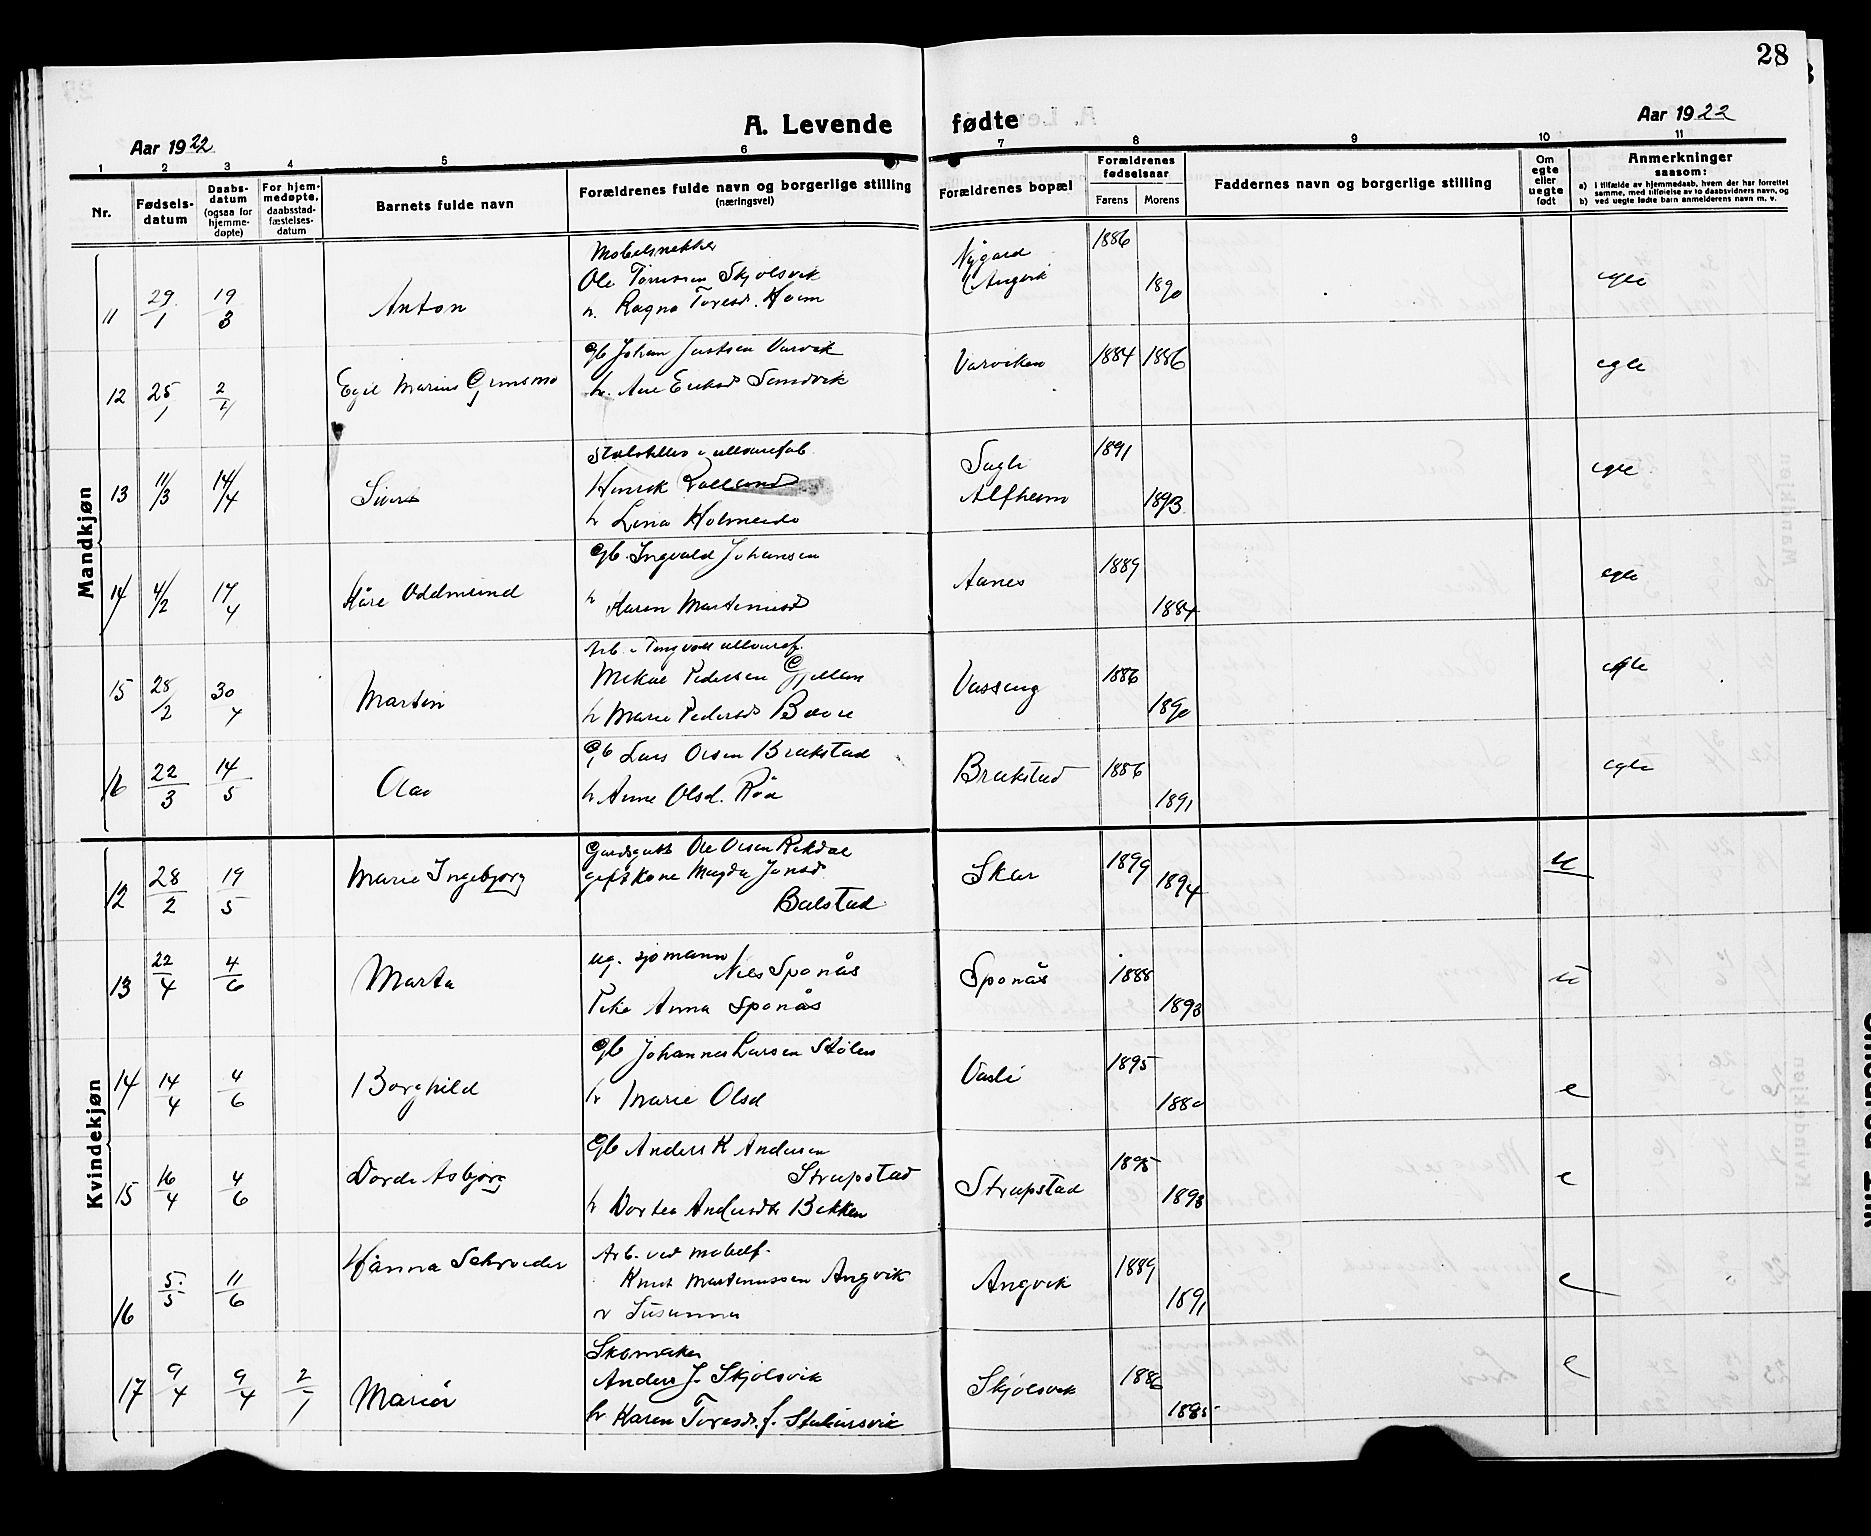 28
A. Levende fødte
Aar 1922
Aar 1922
1 2 3 4 5 6 7 8 9 10 11
Nr.
Fødsels-
datum
Daabs-
datum
(ogsaa for
hjemme-
døpte)
For hjem-
medøpte,
daabsstad-
fæstelses-
datum
Barnets fulde navn
Forældrenes fulde navn og borgerlige stilling
(næringsvei)
Forældrenes bopæl
Forældrenes
fødselsaar
Farens Morens
Faddernes navn og borgerlige stilling
Om
egte
eller
uegte
født
Anmerkninger
saasom:
a) i tilfælde av hjemmedaab, hvem der har forrettet
samme, med tilføielse av to daabsvidners navn, og
b) ved uegte fødte barn anmelderens navn m. v.
Mandkjøn
Møbelsnekker
Ole Skjølsvik
h. Ragna Toresd.
11 29/1 19/3 Anton
Nygard
Angvik
1886 1890 egte
Gb Johan Varvik
h. Ane Eriksd Sandvik
12 25/1 2/4 Egil Marius Grimsmo
Varviken 1884 1886 egte
Henrik
h Lina
13 11/3 14/4
Alfheim
1891 1893 egte
Gb. Ingvald Johansen
h Karen
14 4/2 17/4 Kåre Oddmund
Aanes 1889 1884 egte
Arb. i Tingvoll
Mikal Pedersen Gjellan
h Marie Pedersd Bøvre
15 28/2 30/4 Martin
Vasseng 1886 1890 egte
Gb Lars Olsen Brækstad
h Anne Olsd. Röa
16 22/3 14/5 Olav
Brækstad 1886 1891 egte
Kvindekjøn
Gardsgutt Ole Olsen Rekdal
gift kone Magda Jonsd
Balstad
12 28/2 19/5 Marie Ingebjørg
Skar 1899 1894 u
ug. sjømann
Nils Sponås
Pike Anna Sponås
13 22/4 4/6 Marta
Sponås 1888 1893 u
Gb Johannes Larsen Stølen
h Marie Olsd
14 14/4 4/6 Borghild
Vasli 1895 1880 e
Gb Anders K Andersen
Strupstad
h Dortea Andersdtr Bakken
15 16/4 4/6 Dorde Asbjørg
Strupstad 1895 1893 e
Arb. ved møbelf.
Knut Martinussen Angvik
h Susanna
16 5/5 11/6 Hanna Schrøder
Angvik 1889 1891 e
Skomaker
Anders J. Skjølsvik
h Karen Toresd. f.
17 9/4 9/4 2/7
Skjølsvik 1886 1885 e